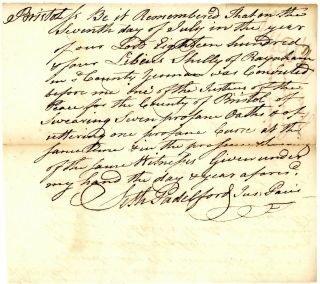 Bristol ss Be it Remembered That on the
Seventh day of July in the year
of our Lord Eighteen hundred
& four Silence Shelly of Raynham
in sd County Yeoman was Convicted
before me one of the Justices of the
Peace for the County of Bristol of
Swearing Seven profane Oaths & of
uttering one profane Curse at the
same time & in the presence
of the same Witness Given under
my hand the day & year aforesd.
Seth Padelford Jus: Pacis